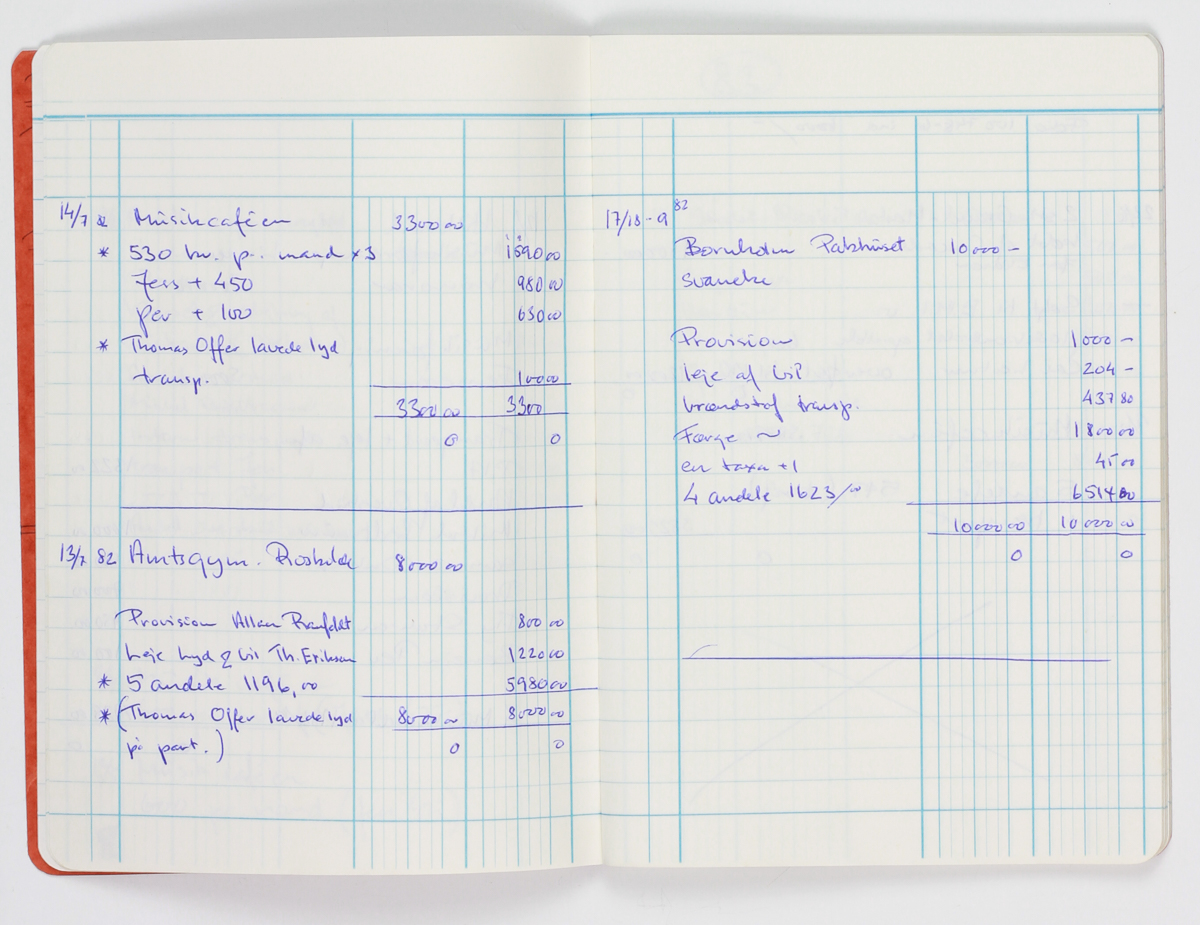 14/7 82 Musikcaféen 3300 00
* 530 kr. p. mand x 3 1590 00
Jess + 450 980 00
per + 100 630 00
* Thomas Offer lavede lyd
transp. 100 00
3300 00 3300
0 0
13/7 82 Amtsgym. Roskilde 8000 00
Provision Allan 800 00
Leje lyd & lis Th. Eriksen 1220 00
* 5 andele 1196,00 5980 00
* (Thomas Offer lavede lyd 8000 00 8000 00
på part.) 0 0
17/18-9 82
Bornholm Pakhuset 10000 -
Svaneke
Provision 1000 -
leje af 204 -
brændstof transp. 437 80
Færge ~ 1800 00
en taxa +1 45 00
4 andele 1623/00 6514 80
10000 00 10000 00
0 0